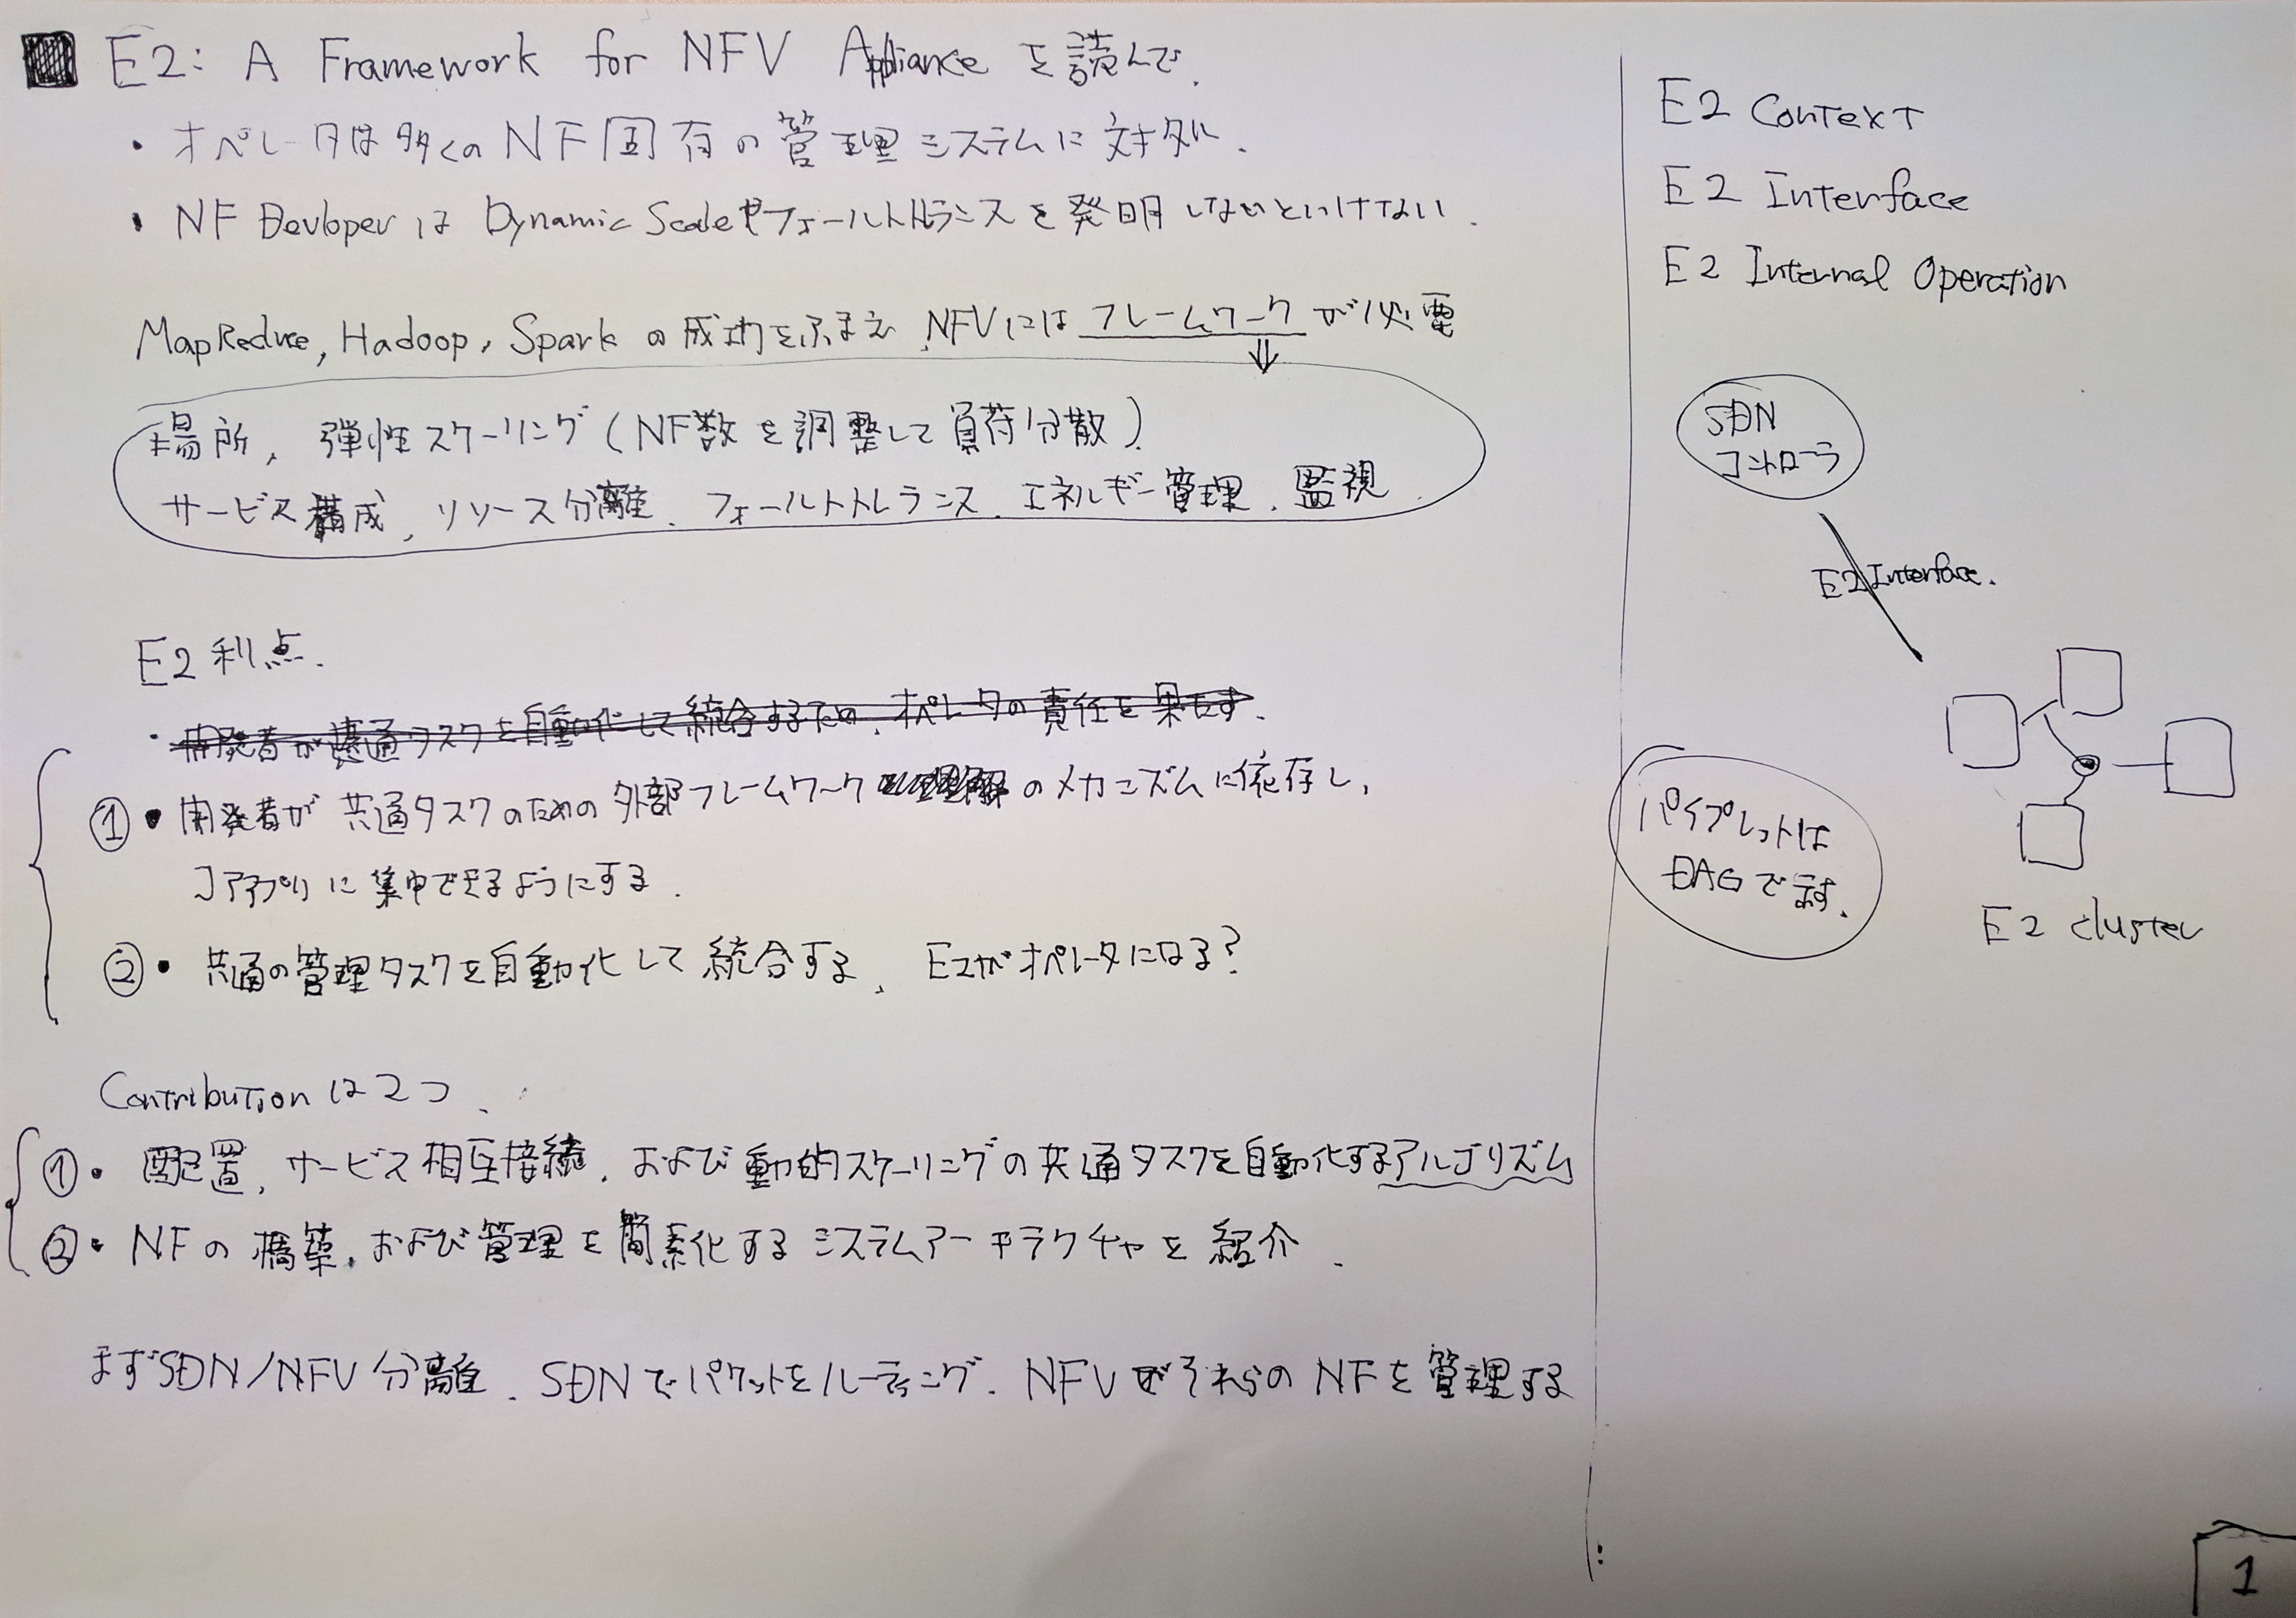 E2: A Framework for NFV Appliance を読んで.
・オペレータは多くのNF固有の管理システムに対処.
・NF Devloperは Dynamic Scaleやフォールトトレランスを発明しないといけない.
MapReduce, Hadoop, Spark の成功をふまえ、NFVには フレームワーク が必要
⇓
場所, 弾性スケーリング(NF数を調整して負荷分散)
サービス構成, リソース分離、フォールトトレランス、エネルギー管理、監視
E2 利点.
・開発者が共通タスクを自動化して統合するため、オペレータの責任を果たす.
①・開発者が共通タスクのための外部フレームワーク のメカニズムに依存し,
コアアプリに集中できるようにする.
②・共通の管理タスクを自動化して統合する、E2がオペレータになる?
Contributionは2つ、
①・配置, サービス相互接続、および動的スケーリングの共通タスクを自動化するアルゴリズム
②・NFの構築、および管理を簡素化するシステムアーキテクチャを紹介.
まずSDN/NFV分離、SDNでパケットをルーティング、NFVがそれらのNFを管理する
E2 Context
E2 Interface
E2 Internal Operation
SDN
コントローラ
E2 Interface.
パイプレットは
DAGで示す.
E2 cluster
1